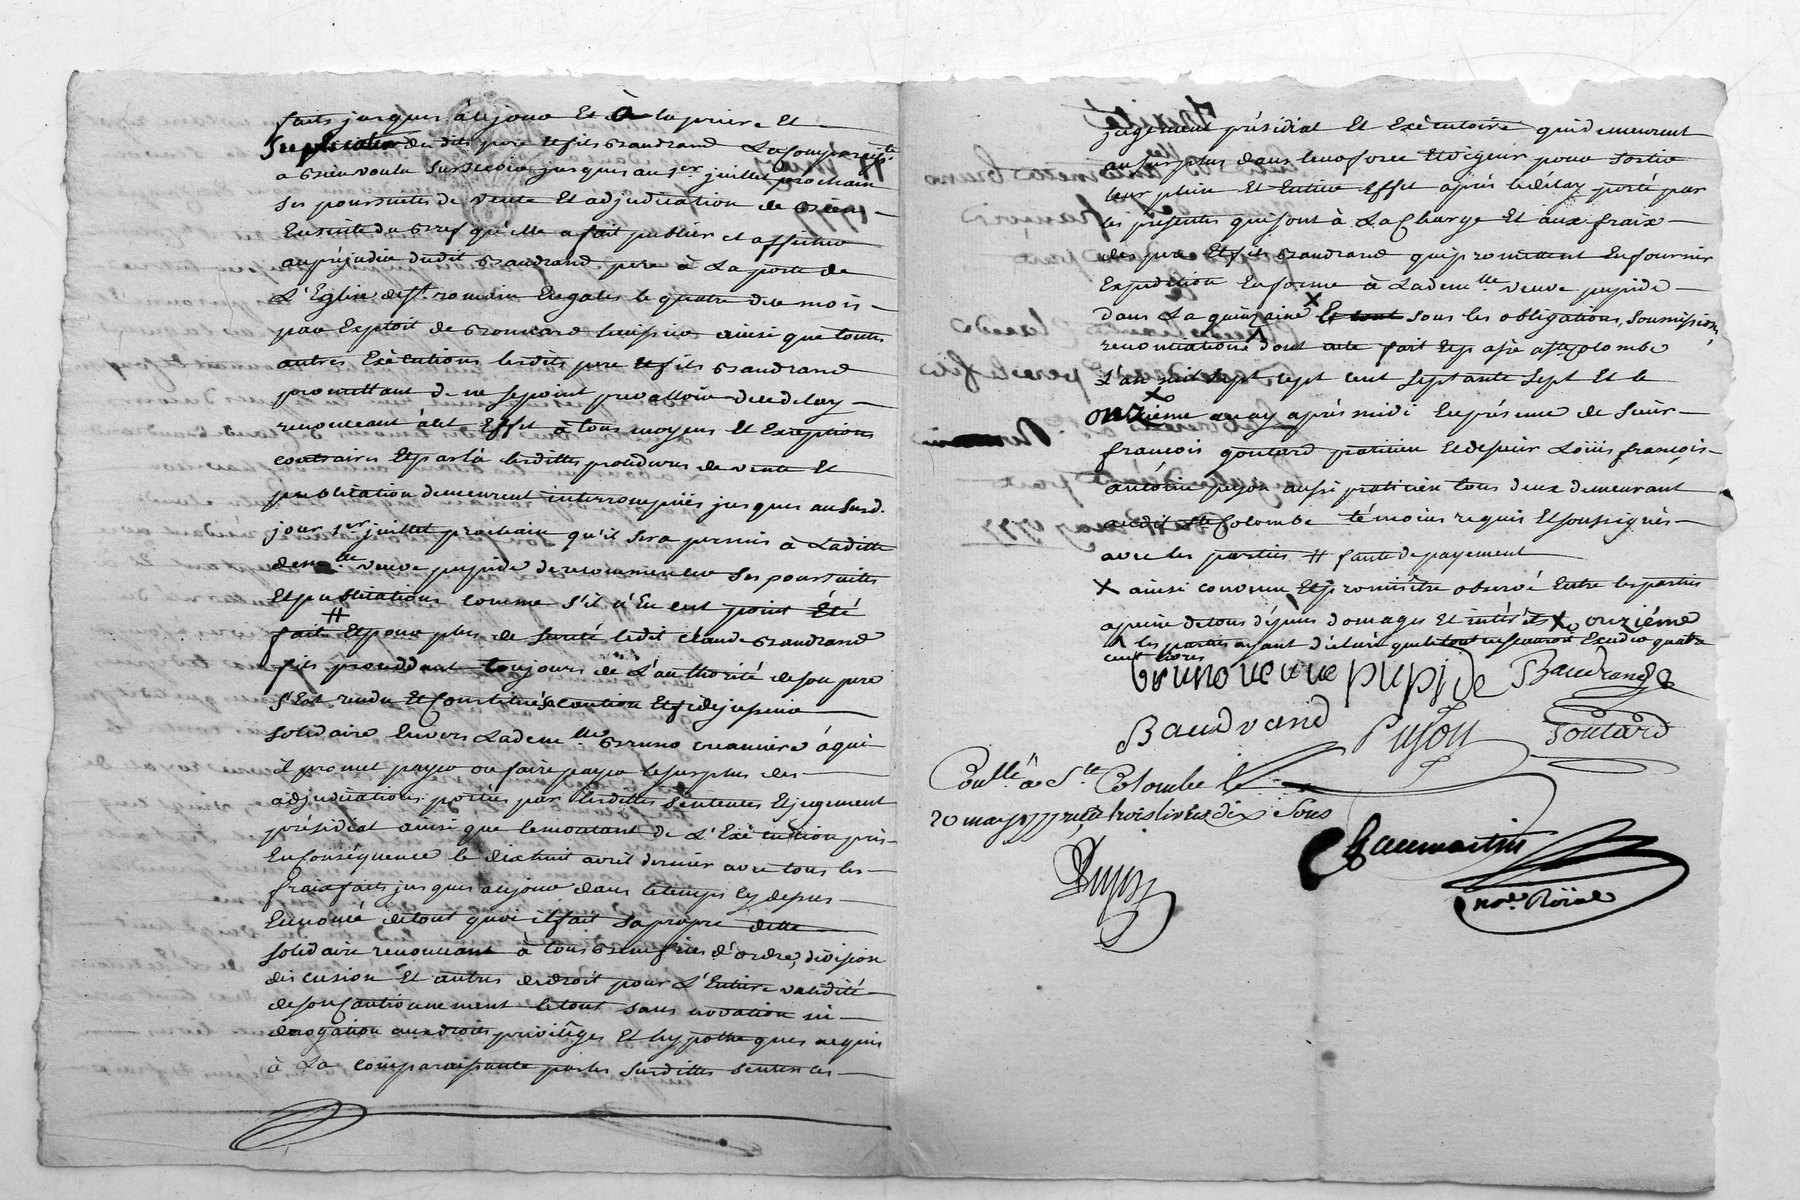 faits jusques à ce jour Et À la priere Et
Supplication desdits pere et fils Baudrand La comparante
a bien voulu surseoir jusques au 1er juillet prochain
ses poursuites de vente Et adjudication de biens
Ensuite du bref qu'elle a fait publier et afficher
au préjudice dudit Baudrand pere à La porte de
L'Eglise de st romain En gales le quatre de ce mois
par Exploit de huissier ainsi que toutes
autres Exécutions lesdits pere et fils Baudrand
promettant de ne se point prevaloir de ce delay
renonceant à cet Effet à tous moyens Et Exceptions
contraires Et par là lesdittes procédures de vente Et
publication demeurent interrompües jusques au susd.
jour 1er juillet prochain qu'il sera permis à Laditte
demlle veuve pupide de recommencer ses poursuites
Et publications comme s'il n'En eut point Été
fait # Et pour plus de sureté ledit claude Baudrand
fils proceddant toujours de L'authorité de son pere
s'Est rendu Et Constitué caution Et fidejusseur
solidaire Envers Lademlle Bruno creanciere à qui
il promet payer ou faire payer le surplus des
adjudications portées par lesdittes sentences Et jugement
présidial ainsi que le montant de L'Exécution prise
En conséquence le dixhuit avril dernier avec tous les
fraix faits jusques à ce jour dans le temps cy dessus
Enoncé de tout quoi il fait sa propre dette
solidaire renonceant à tous benefices d'ordre, division
discusion Et autres de droit pour L'Entiere validité
de son Cautionnement le tout sans novation ni
derogation aux droits privilèges Et hypotheques acquis
à La comparaissante par les susdittes sentences
jugement présidial Et Exécutoire qui demeurent
au surplus dans leur force Et vigeur pour sortir
leur plein Et Entier Effet après le délay porté par
les présentes qui sont à La Charge Et aux fraix
des pere Et fils Baudrand qui promettent En fournir
Expedition En forme à Lademlle veuve pupide
dans La quinzaine X Et tout sous les obligations, soumissions,
renontiations dont acte fait Et passé à ste Colombe
L'an mil sept cent septante sept Et le
onzième may après midi En présence de sieur
françois goutard praticien Et de sieur Loüis françois
antoine peyson aussi praticien tous deux demeurant
audit Ste Colombe témoins requis Et soussignés
avec les parties # faute de payement
X ainsi convenu Et promis être observé Entre les parties
a peine de tous dépens domages Et intérêts X onzième
les parties ayant déclaré que le tout Excedio quatre
cent livres
bruno veuve pupide Baudrand
Baudrand Peyson Goutard
Conllé à Ste Colombe le
20 may 1777 reçu trois livres dix sous
notre Roïal